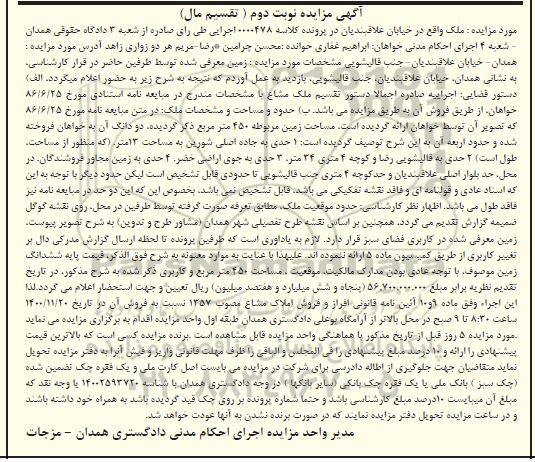 آگهی مزایده نوبت دوم ( تقسیم مال)
مورد مزایده : ملک واقع در خیابان علاقبندیان در پرونده کلاسه ۰۰۰۰۴۷۸ اجرایی طی رای صادره از شعبه ۳ دادگاه حقوقی همدان
- شعبه ۴ اجرای احکام مدنی خواهان: ابراهیم غفاری خوانده :محسن چرامین *رضا-مریم هر دو زواری زاهد آدرس مورد مزایده :
همدان- خیابان علاقبندیان - جنب قالیشویی مشخصات مورد مزایده : زمین معرفی شده توسط طرفین حاضر در قرار کارشناسی،
به نشانی همدان، خیابان علاقبندیان، جنب قالیشویی، بازدید به عمل آوردم که نتیجه به شرح زیر به حضور اعلام میگردد. الف)
دستور قضایی: اجراییه صادره اجمالا دستور تقسیم ملک مشاع با مشخصات مندرج در مبایعه نامه استنادی مورخ ۸۶/۶/۲۵
خواهان، از طریق فروش آن به طریق مزایده می باشد. ب) حدود و مساحت و مشخصات ملک: در متن مبایعه نامه مورخ ۸۶/۶/۲۵
که تصویر آن توسط خواهان ارائه گردیده است، مساحت زمین مربوطه ۴۵۰ متر مربع ذکر گردیده، دو دانگ آن به خواهان فروخته
شده و حدود اربعه آن به این شرح توصیف گردیده است: ۱ حدی به جاده اصلی شورین به مساحت ۱۳متر، (که منظور از مساحت،
طول است) ۲ حدی به قالیشویی رضا و کوچه ۴ متری ۳۴ متر، ۳ حدی به جوی اراضی خضر، ۴ حدی به زمین مجاور فروشندگان. در
محل، حد بلوار اصلی علاقبندیان و حدکوچه ۴ متری جنب قالیشویی تا حدودی قابل تشخیص است لیکن حدود دیگر با توجه به این
که اسناد عادی و قولنامه ای و فاقد نقشه تفکیکی می باشد، قابل تشخیص نمی باشد، بخصوص این که این دو حد در مبایعه نامه نیز
فاقد طول می باشد. اظهار نظر کارشناسی: حدود موقعیت ملک، مطابق تعرفه صورت گرفته توسط طرفین در محل، روی نقشه گوگل
ضمیمه گزارش تقدیم می گردد. همچنین بر اساس نقشه طرح تفصیلی شهر همدان (مشاور طرح و تدوین) به شرح تصویر پیوست،
زمین معرفی شده در کاربری فضای سبز قرار دارد. لازم به یادآوری است که طرفین پرونده تا لحظه ارسال گزارش مدرکی دال بر
تغییر کاربری از طریق کمیسیون ماده ۵ ارائه ننموده اند. علیهذا با عنایت به موارد معنونه به شرح فوق الذکر، قیمت پایه ششدانگ
زمین موصوف، با توجه عادی بودن مدارک مالکیت، موقعیت ، مساحت ۴۵۰ متر مربع و کاربری ذکر شده به شرح مذکور، در تاریخ
تقدیم نظریه برابر مبلغ ۵۶,۷۰۰,۰۰۰,۰۰۰ (پنجاه و شش میلیارد و هفتصد میلیون) ریال تعیین و جهت استحضار اعلام می گردد.لذا
این اجراء وفق ماده ۹و۱۰ آئین نامه قانونی افراز و فروش املاک مشاع مصوب ۱۳۵۷ نسبت به فروش آن در تاریخ ۱۴۰۰/۱۱/۲۰
ساعت ۸:۳۰ تا ۹ صبح در محل بالاتر از آرامگاه بوعلی دادگستری همدان طبقه اول واحد مزایده اقدام به برگزاری مزایده می نماید
.مورد مزایده ۵ روز قبل از تاریخ مذکور با هماهنگی واحد مزایده قابل مشاهده است .برنده مزایده کسی است که بالاترین قیمت
پیشنهادی را ارائه و ۱۰ درصد مبلغ پیشنهادی را فی المجلس و الباقی را ظرف مهلت قانونی واریز و فیش آنرا به دفتر مزایده تحویل
نماید متقاضیان جهت جلوگیری از اطاله دادرسی برای شرکت در مزایده می بایست اصل کارت ملی و یک فقره چک تضمین شده
(چک سبز ) بانک ملی یا یک فقره چک بانکی (سایر بانکها ) در وجه دادگستری همدان با شناسه ۱۴۰۰۲۵۹۳۷۲۰ یا وجه نقد که
مبلغ آن میبایست ۱۰درصد مبلغ کارشناسی باشد و حتما شماره پرونده بر روی چک قید گردیده باشد به همراه خود داشته باشند
و در ساعت مزایده تحویل دفتر مزایده نمایند که در صورت برنده نشدن به آنها عودت خواهد شد.
مدیر واحد مزایده اجرای احکام مدنی دادگستری همدان - مزجات